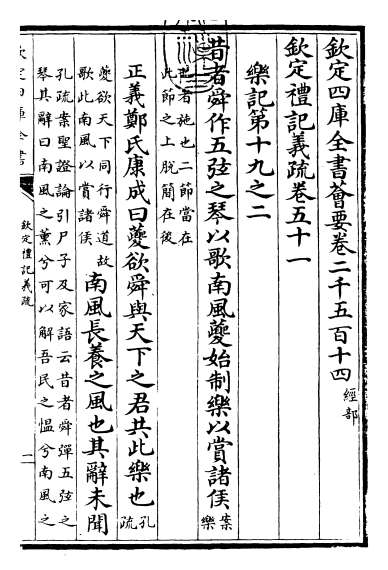 欽定四庫全書薈要卷二千五百十四 經部
欽定禮記義疏卷五十一
樂記第十九之二
昔者舜作五弦之琴以歌南風夔始制樂以賞諸侯 案樂
者施也二節當在
此節之上脫簡在後
正義鄭氏康成曰夔欲舜與天下之君共此樂也 孔疏
夔欲天下同行舜道故
歌此南風以賞諸侯
南風長養之風也其辭未聞
孔疏案聖證論引尸子及家語云昔者舜彈五弦之
琴其辭曰南風之薰兮可以解吾民之慍兮南風之
欽定四庫全書
欽定禮記義疏
一